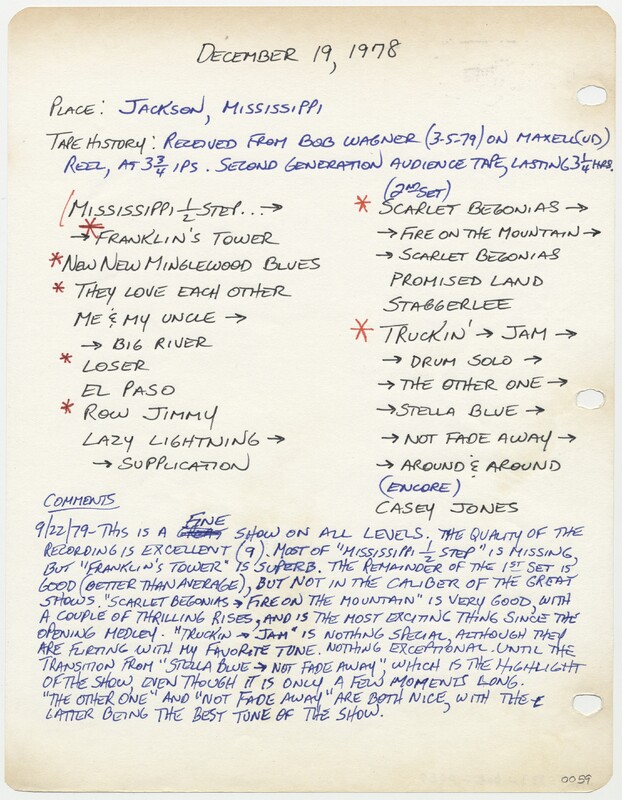 DECEMBER 19, 1978
PLACE: JACKSON, MISSISSIPPI
TAPE HISTORY: RECEIVED FROM BOB WAGNER (3-5-79) ON MAXELL (UD)
REEL, AT 3 3/4 IPS. SECOND GENERATION AUDIENCE TAPE, LASTING 3 1/4 HRS.
(MISSISSIPPI 1/2 STEP... →
* → FRANKLIN'S TOWER
* NEW NEW MINGLEWOOD BLUES
* THEY LOVE EACH OTHER
ME & MY UNCLE →
→ BIG RIVER
* LOSER
EL PASO
* ROW JIMMY
LAZY LIGHTNING →
→ SUPPLICATION
(2ND SET)
* SCARLET BEGONIAS →
→ FIRE ON THE MOUNTAIN →
→ SCARLET BEGONIAS
PROMISED LAND
STAGGERLEE
* TRUCKIN' → JAM →
→ DRUM SOLO →
→ THE OTHER ONE →
→ STELLA BLUE →
→ NOT FADE AWAY →
→ AROUND & AROUND
(ENCORE)
CASEY JONES
COMMENTS
9/22/79 - THIS IS A FINE SHOW ON ALL LEVELS. THE QUALITY OF THE
RECORDING IS EXCELLENT (9). MOST OF "MISSISSIPPI 1/2 STEP" IS MISSING,
BUT "FRANKLIN'S TOWER" IS SUPERB. THE REMAINDER OF THE 1ST SET IS
GOOD (BETTER THAN AVERAGE), BUT NOT IN THE CALIBER OF THE GREAT
SHOWS. "SCARLET BEGONIAS → FIRE ON THE MOUNTAIN" IS VERY GOOD, WITH
A COUPLE OF THRILLING RISES, AND IS THE MOST EXCITING THING SINCE THE
OPENING MEDLEY. "TRUCKIN → JAM" IS NOTHING SPECIAL, ALTHOUGH THEY
ARE FLIRTING WITH MY FAVORITE TUNE. NOTHING EXCEPTIONAL UNTIL THE
TRANSITION FROM "STELLA BLUE → NOT FADE AWAY" WHICH IS THE HIGHLIGHT
OF THE SHOW, EVEN THOUGH IT IS ONLY A FEW MOMENTS LONG.
"THE OTHER ONE" AND "NOT FADE AWAY" ARE BOTH NICE, WITH THE
LATTER BEING THE BEST TUNE OF THE SHOW.
0059